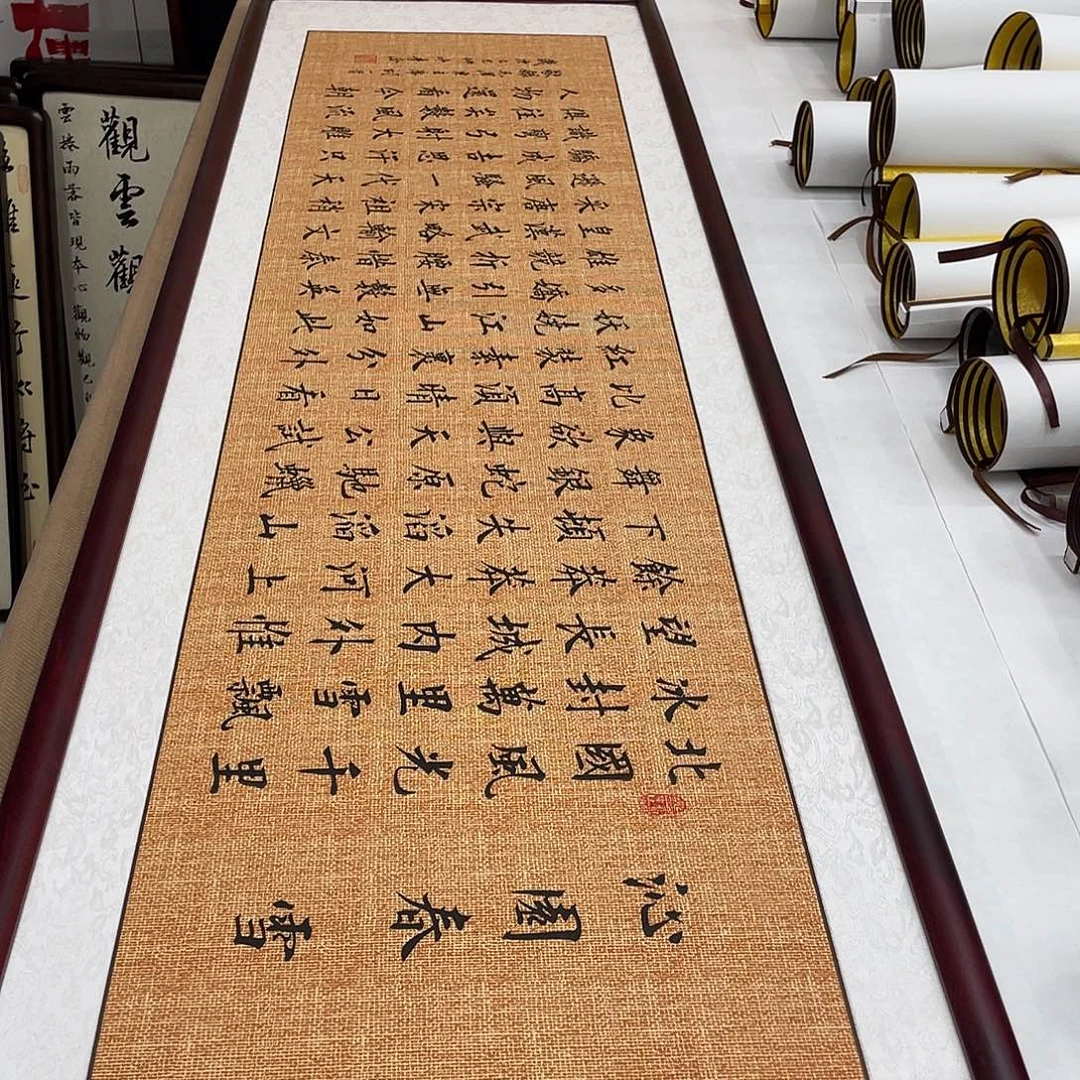 沁園春雪
北國風光千里
冰封萬里雪飄
望長城內外惟
餘莽莽大河上
下頓失滔滔山
舞銀蛇原馳蠟
象欲與天公試
比高須晴日看
紅裝素裹分外
妖嬈江山如此
多嬌引無數英
雄競折腰惜秦
皇漢武略輸文
采唐宗宋祖稍
遜風騷一代天
驕成吉思汗只
識彎弓射大雕
俱往矣數風流
人物還看今朝
觀雲觀
雲捲雨落皆現本心觀物觀己